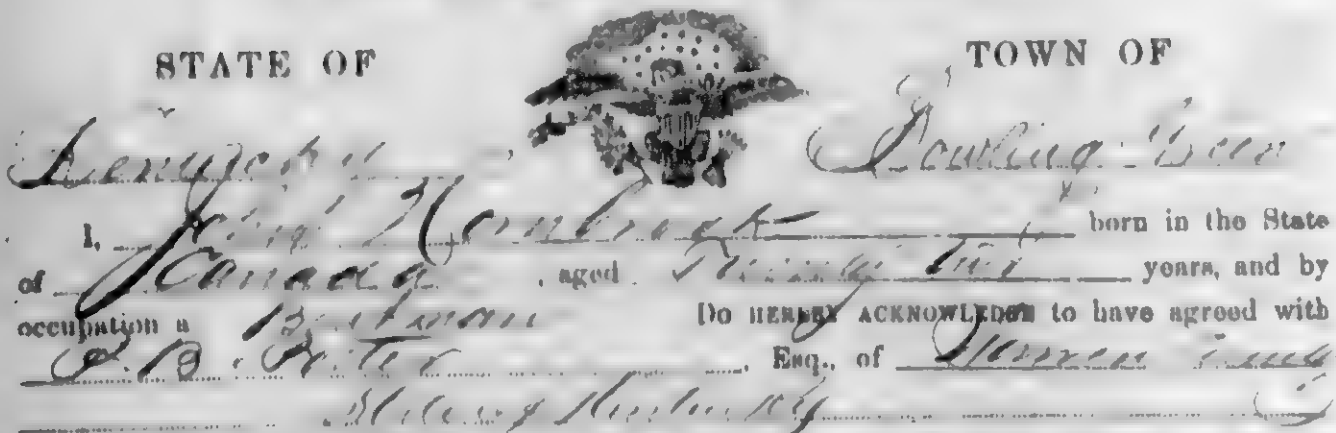 STATE OF
TOWN OF
Kentucky
Bowling Green
I, John Hornbrook born in the State
of Canada, aged Twenty two years, and by
occupation a Boatman Do HEREBY ACKNOWLEDGE to have agreed with
P. B. Porter, Esq., of Warren County
State of Kentucky